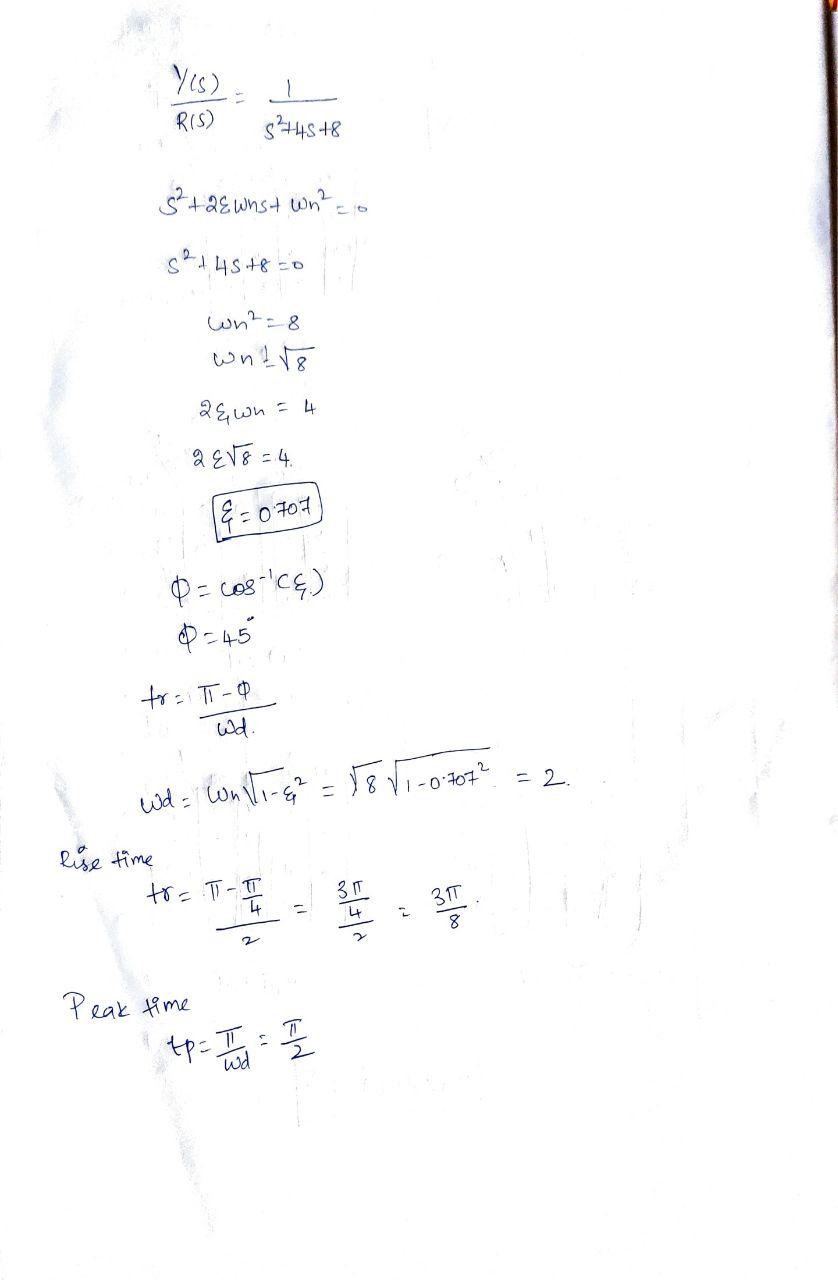 Y(s)/R(s) = 1/(s²+4s+8)
s²+2ξwns+wn²=0
s²+4s+8=0
wn²=8
wn=√8
2ξwn = 4
2ξ√8 = 4.
ξ=0.707
Φ=cos⁻¹(ξ)
Φ=45°
tr = (π-Φ)/wd.
wd = wn√(1-ξ²) = √8 √(1-0.707²) = 2.
Rise time
tr = (π-π/4)/2 = (3π/4)/2 = 3π/8.
Peak time
tp = π/wd = π/2